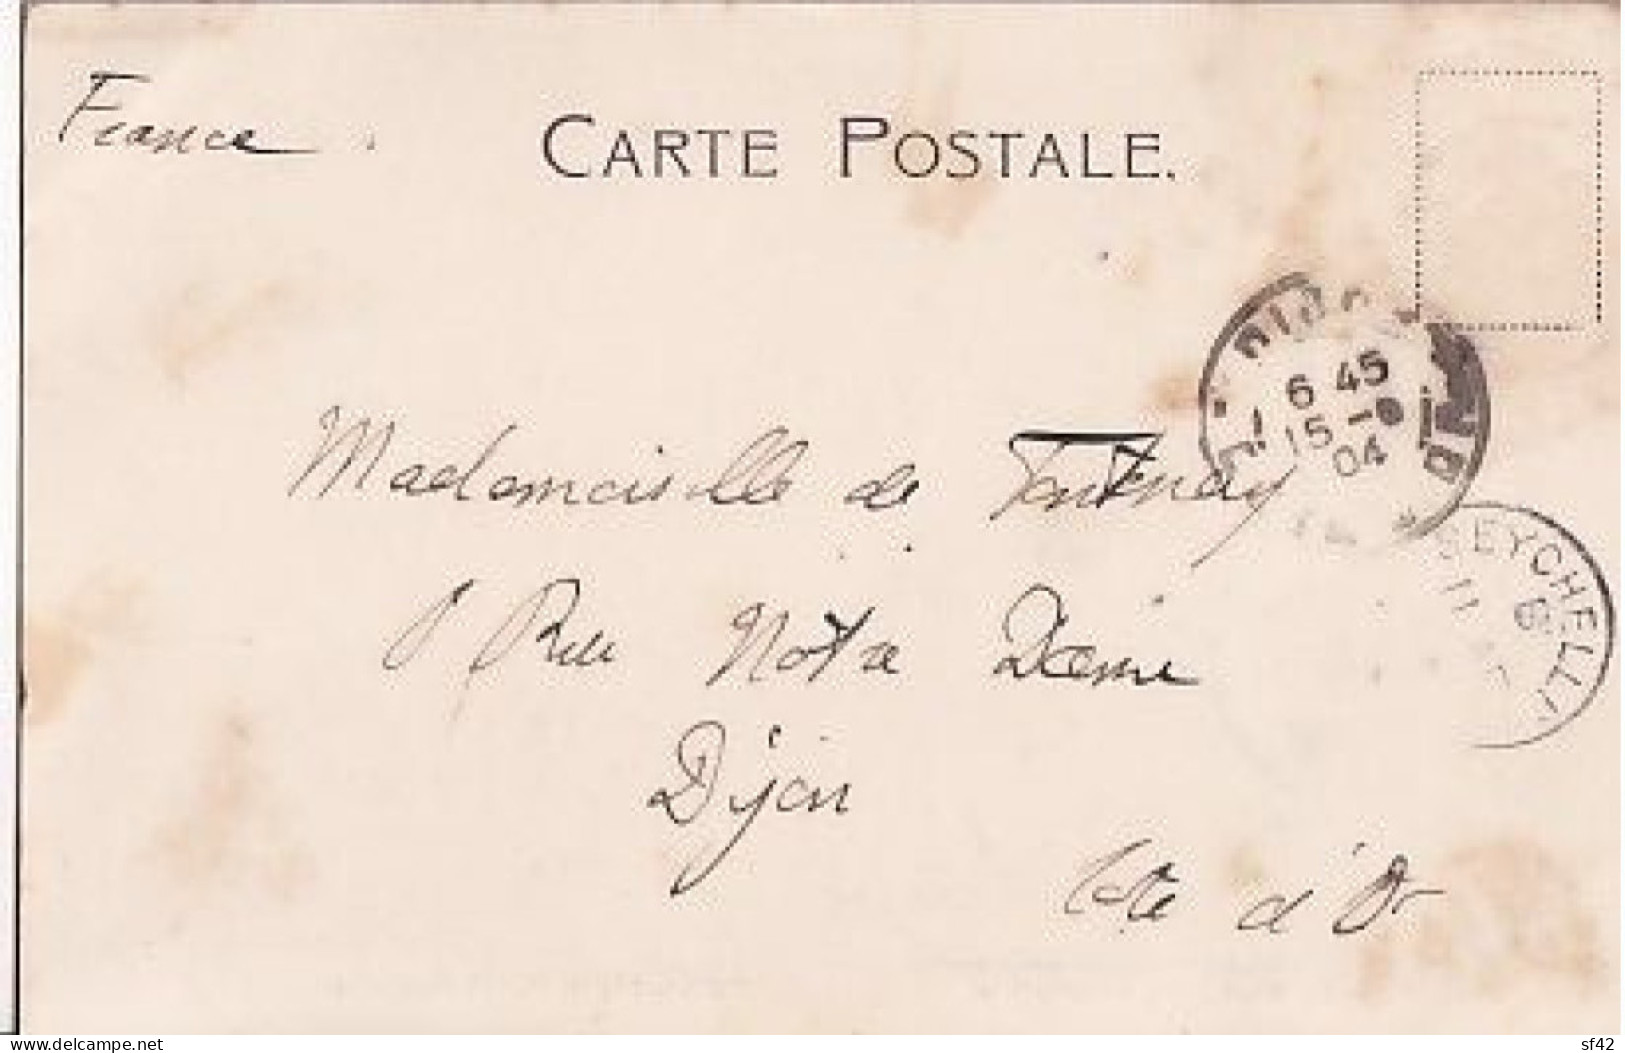 France.
CARTE POSTALE.
DIJON
6 45
15 -
04
Mademoiselle de
SEYCHELL
11
Rue Notre Dame
Dijon
Cote d'Or
www.delcampe.net
sf42